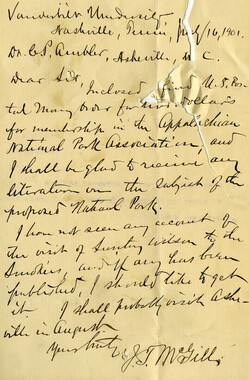 Vanderbilt University
Nashville, Tenn., July 16, 1901.
Dr. C. P. Ambler, Asheville, N. C.
Dear Sir,
Inclosed find U. S. Pos-
tal Money Order for two dollars
for membership in the Appalachian
National Park Association, and
I shall be glad to receive any
literature on the subject of the
proposed National Park.
I have not seen any account of
the visit of Secretary Wilson to the
Smokies, and if any has been
published, I should like to get
it. I shall probably visit Ashe-
ville in August.
Yours truly,
J. T. McGill